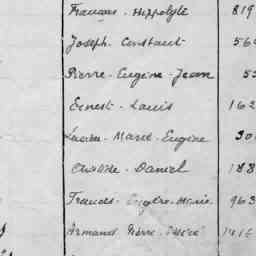 François - Hippolyte 819
Joseph - Constant 56
Pierre - Eugène - Jean 5
Ernest - Louis 162
Lucien - Marie - Eugène 30
Daniel 188
Francis - Eugène - Marie 963
Armand Pierre 1416